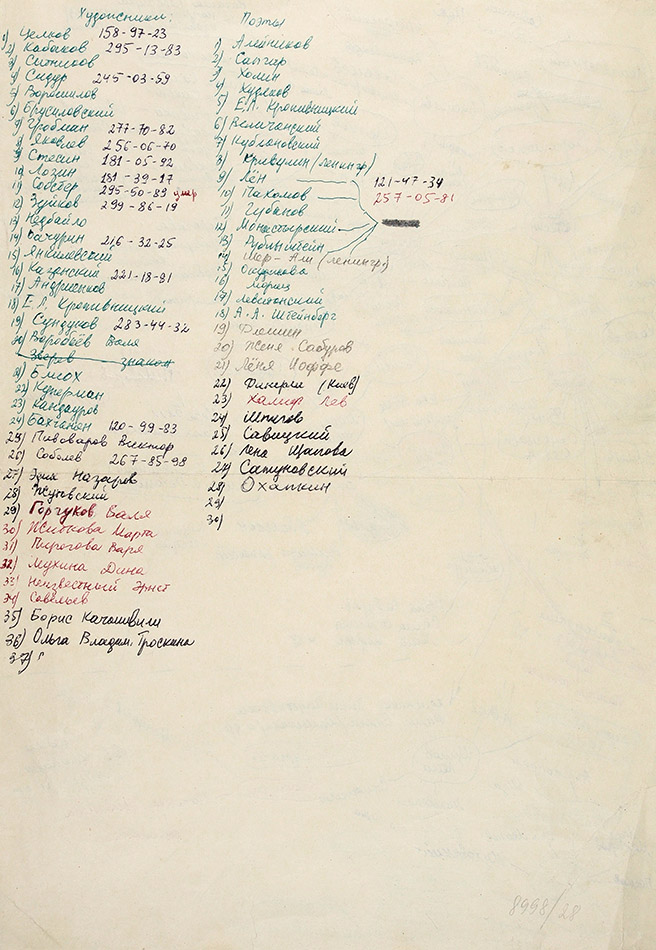 Художники:
1) Целков 158-97-23
2) Кабаков 295-13-83
3) Ситников
4) Сидур 245-03-59
5) Ворошилов
6) Брусиловский
7) Гробман 277-70-82
8) Яковлев 256-06-70
9) Стесин 181-05-92
10) Лозин 181-39-17
11) Соостер 295-50-89 умер
12) Зуйков 299-86-19
13) Недбайло
14) Бачурин 216-32-25
15) Янкилевский
16) Каганский 221-18-91
17) Андриенков
18) Е.Л. Кропивницкий
19) Сундуков 283-44-32
20) Воробьёв Валя
Зверев - знаком
21) Блох
22) Куперман
23) Кандауров
24) Бахчанян 120-99-83
25) Пивоваров Виктор
26) Соболев 267-85-98
27) Эдик Назаров
28) Жутовский
29) Горчуков Валя
30) Житкова Марта
31) Пирогова Варя
32) Мухина Дина
33) Неизвестный Эрнст
34) Савельев
35) Борис Качашвили
36) Ольга Владим. Троскина
37)
Поэты
1) Алейников
2) Сапгир
3) Холин
4) Худяков
5) Е.Л. Кропивницкий
6) Величанский
7) Кублановский
8) Кривулин (ленингр)
9) Лён 121-47-34
10) Пахомов 257-05-81
11) Губанов
12) Монастырский
13) Рубинштейн
14) Мар-Али (ленингр)
15) Окуджава
16) Мориц
17) Левитанский
18) А.А. Штейнберг
19)
20) Женя Сабуров
21) Лёня Иоффе
22) (Киев)
23) Халиф Лев
24)
25) Савицкий
26) Лена Щапова
27) Сатуновский
28) Охапкин
29)
30)
8998/28